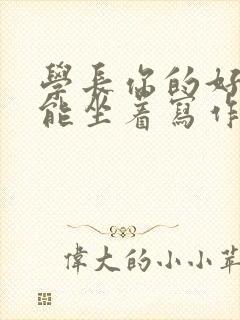 學長你的好
能坐着寫作
偉大的小小苹